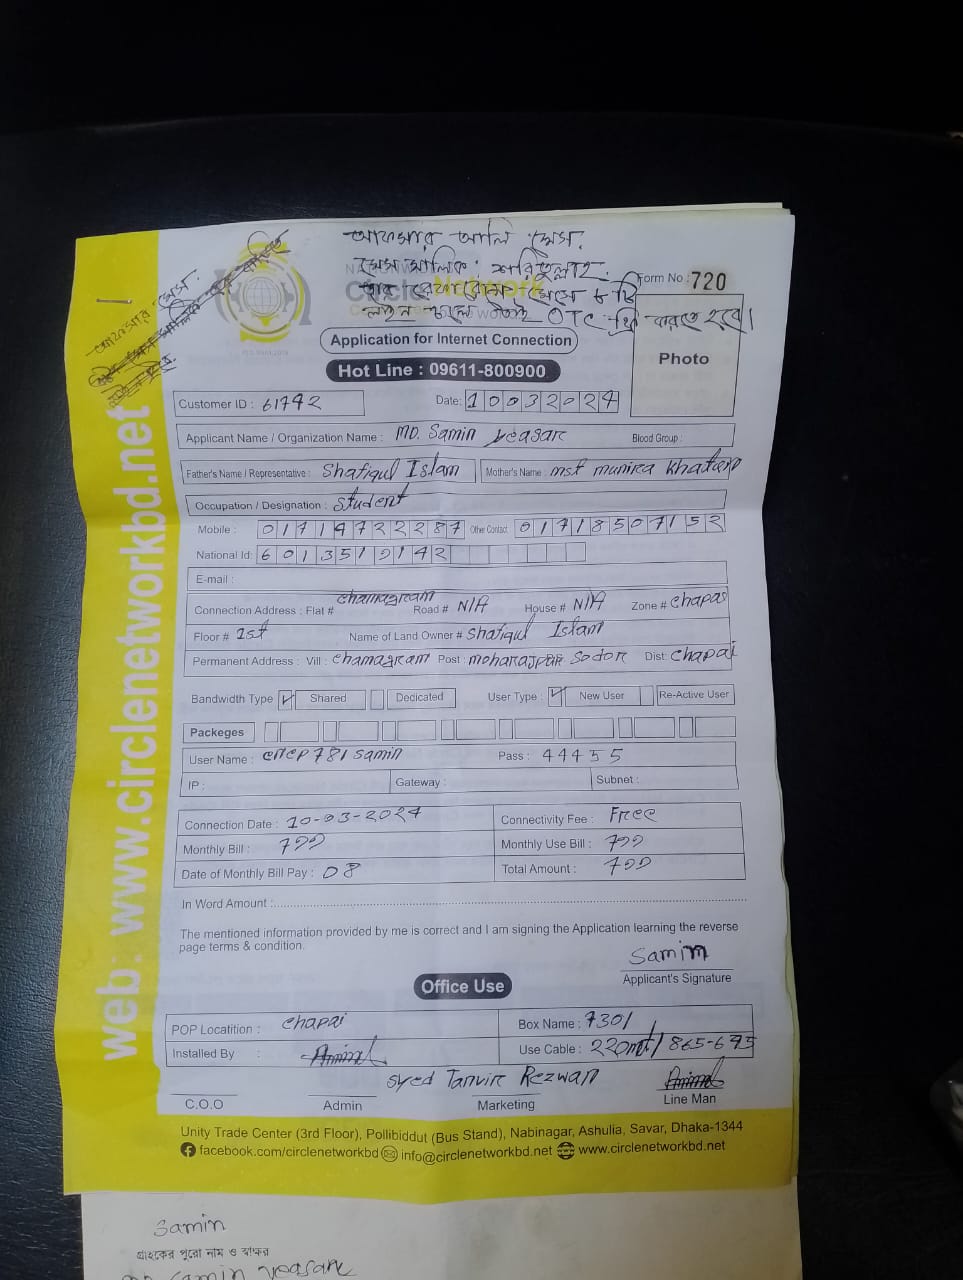 আফসার আলি মেস.
মেস মালিক: শরিফুল্লাহ.
তার রেফারেন্স মেসে ৮ টি
লাইন চলে তাই OTC ফ্রি করতে হবে।
আফসার মেস.
Network
Form No : 720
Photo
Application for Internet Connection
Hot Line : 09611-800900
Customer ID : 61742 Date: 10032024
Applicant Name / Organization Name : MD. Samin Yeasar Blood Group :
Father's Name / Representative : Shafiqul Islam Mother's Name : mst munira khatun
Occupation / Designation : Student
Mobile : 01719722287 Other Contact 01718507152
National Id: 6013519142
E-mail :
Connection Address : Flat # chamagram Road # N/A House # N/A Zone # chapai
Floor # 1st Name of Land Owner # Shafiqul Islam
Permanent Address : Vill : chamagram Post : moharajpur Sodor Dist: chapai
Bandwidth Type Shared Dedicated User Type : New User Re-Active User
Packeges
User Name : cncp781samin Pass : 44455
IP : Gateway : Subnet :
Connection Date : 10-03-2024 Connectivity Fee : Free
Monthly Bill : 700 Monthly Use Bill : 700
Date of Monthly Bill Pay : 08 Total Amount : 700
In Word Amount :
The mentioned information provided by me is correct and I am signing the Application learning the reverse
page terms & condition.
Samim
Applicant's Signature
Office Use
POP Locatition : chapai Box Name : 7301
Installed By : Use Cable : 220mt/865-645
Syed Tanvir Rezwan
C.O.O Admin Marketing Line Man
Unity Trade Center (3rd Floor), Pollibiddut (Bus Stand), Nabinagar, Ashulia, Savar, Dhaka-1344
facebook.com/circlenetworkbd info@circlenetworkbd.net www.circlenetworkbd.net
web: www.circlenetworkbd.net
Samin
গ্রাহকের পুরো নাম ও স্বাক্ষর
samin yeasar